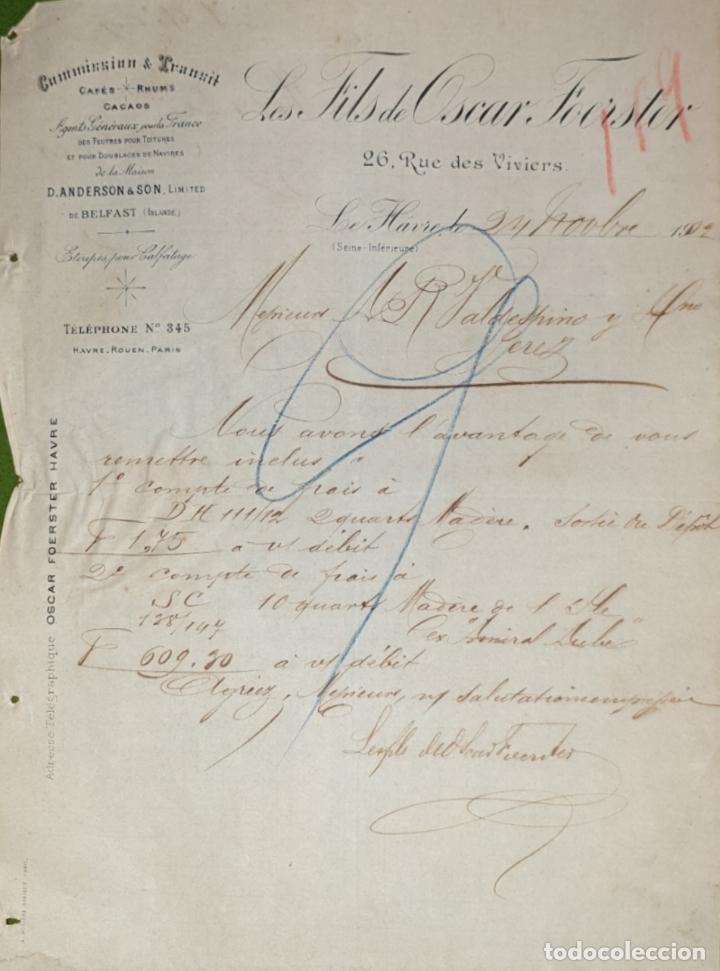 Commission & Transit
CAFÉS - RHUMS
CACAOS
Agents Généraux pour la France
DES FEUTRES POUR TOITURES
ET POUR DOUBLAGES DE NAVIRES
de la Maison
D. ANDERSON & SON, LIMITED
DE BELFAST (IRLANDE)
Etoupes pour Calfatage
TÉLÉPHONE No 345
HAVRE. ROUEN. PARIS
Adresse Télégraphique OSCAR FOERSTER HAVRE
Les Fils de Oscar Foerster
26, Rue des Viviers.
Le Hâvre, le 24 Novbre 190
(Seine-Inférieure)
Messieurs A R Valdespino y Hno
Jerez
Nous avons l'avantage de vous
remettre inclus :
1o compte de frais à
111/12 2 quarts Madère. Sortie du Dépôt
F 1.75 à v/ débit
2o compte de frais à
SC 10 quarts Madère de
128/147
ex "Amiral
F 609.30 à v/ débit
Agréez, Messieurs, n/ salutations empressées
Les fils de Oscar Foerster
todocoleccion.net